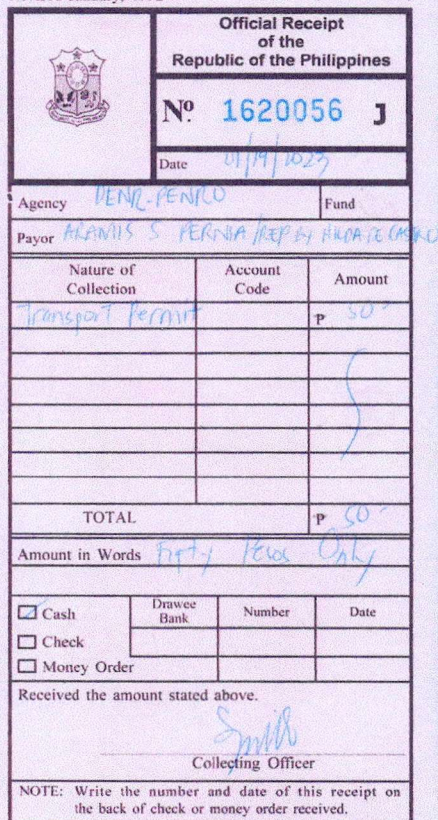 Official Receipt
of the
Republic of the Philippines
Nº 1620056 J
Date 01/19/2023
Agency DENR-PENRO Fund
Payor ARAMIS S PERNIA /REP BY HILDA DE CASTRO
Nature of Collection Account Code Amount
Transport Permit ₱ 50-
TOTAL ₱ 50-
Amount in Words Fifty Pesos Only
Cash Drawee Bank Number Date
Check
Money Order
Received the amount stated above.
Collecting Officer
NOTE: Write the number and date of this receipt on
the back of check or money order received.